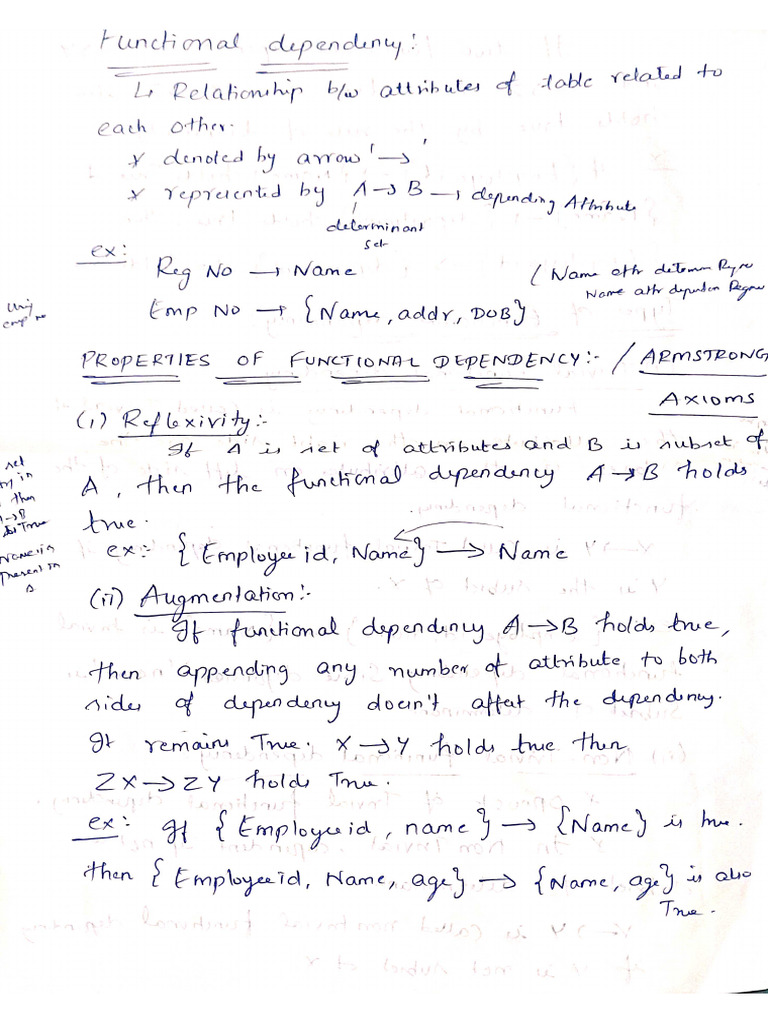 Functional dependency:
↳ Relationship b/w attributes of table related to
each other.
* denoted by arrow '→'
* represented by A → B → depending Attribute
determinant
set
ex:
Reg No → Name
(Name attr determin Regno
Name attr dependen Regno
Emp No → {Name, addr, DOB}
emp no
PROPERTIES OF FUNCTIONAL DEPENDENCY:- / ARMSTRONG
AXIOMS
(i) Reflexivity:-
If A is set of attributes and B is subset of
A, then the functional dependency A → B holds
true.
set
in
then
A→B
is True
Name is
Present in
A
ex:- {Employee id, Name} → Name
(ii) Augmentation:-
If functional dependency A → B holds true,
then appending any number of attribute to both
sides of dependency doesn't affect the dependency.
It remains True. X → Y holds true then
ZX → ZY holds True.
ex: If {Employeeid, name} → {Name} is true.
then {Employeeid, Name, age} → {Name, age} is also
True.